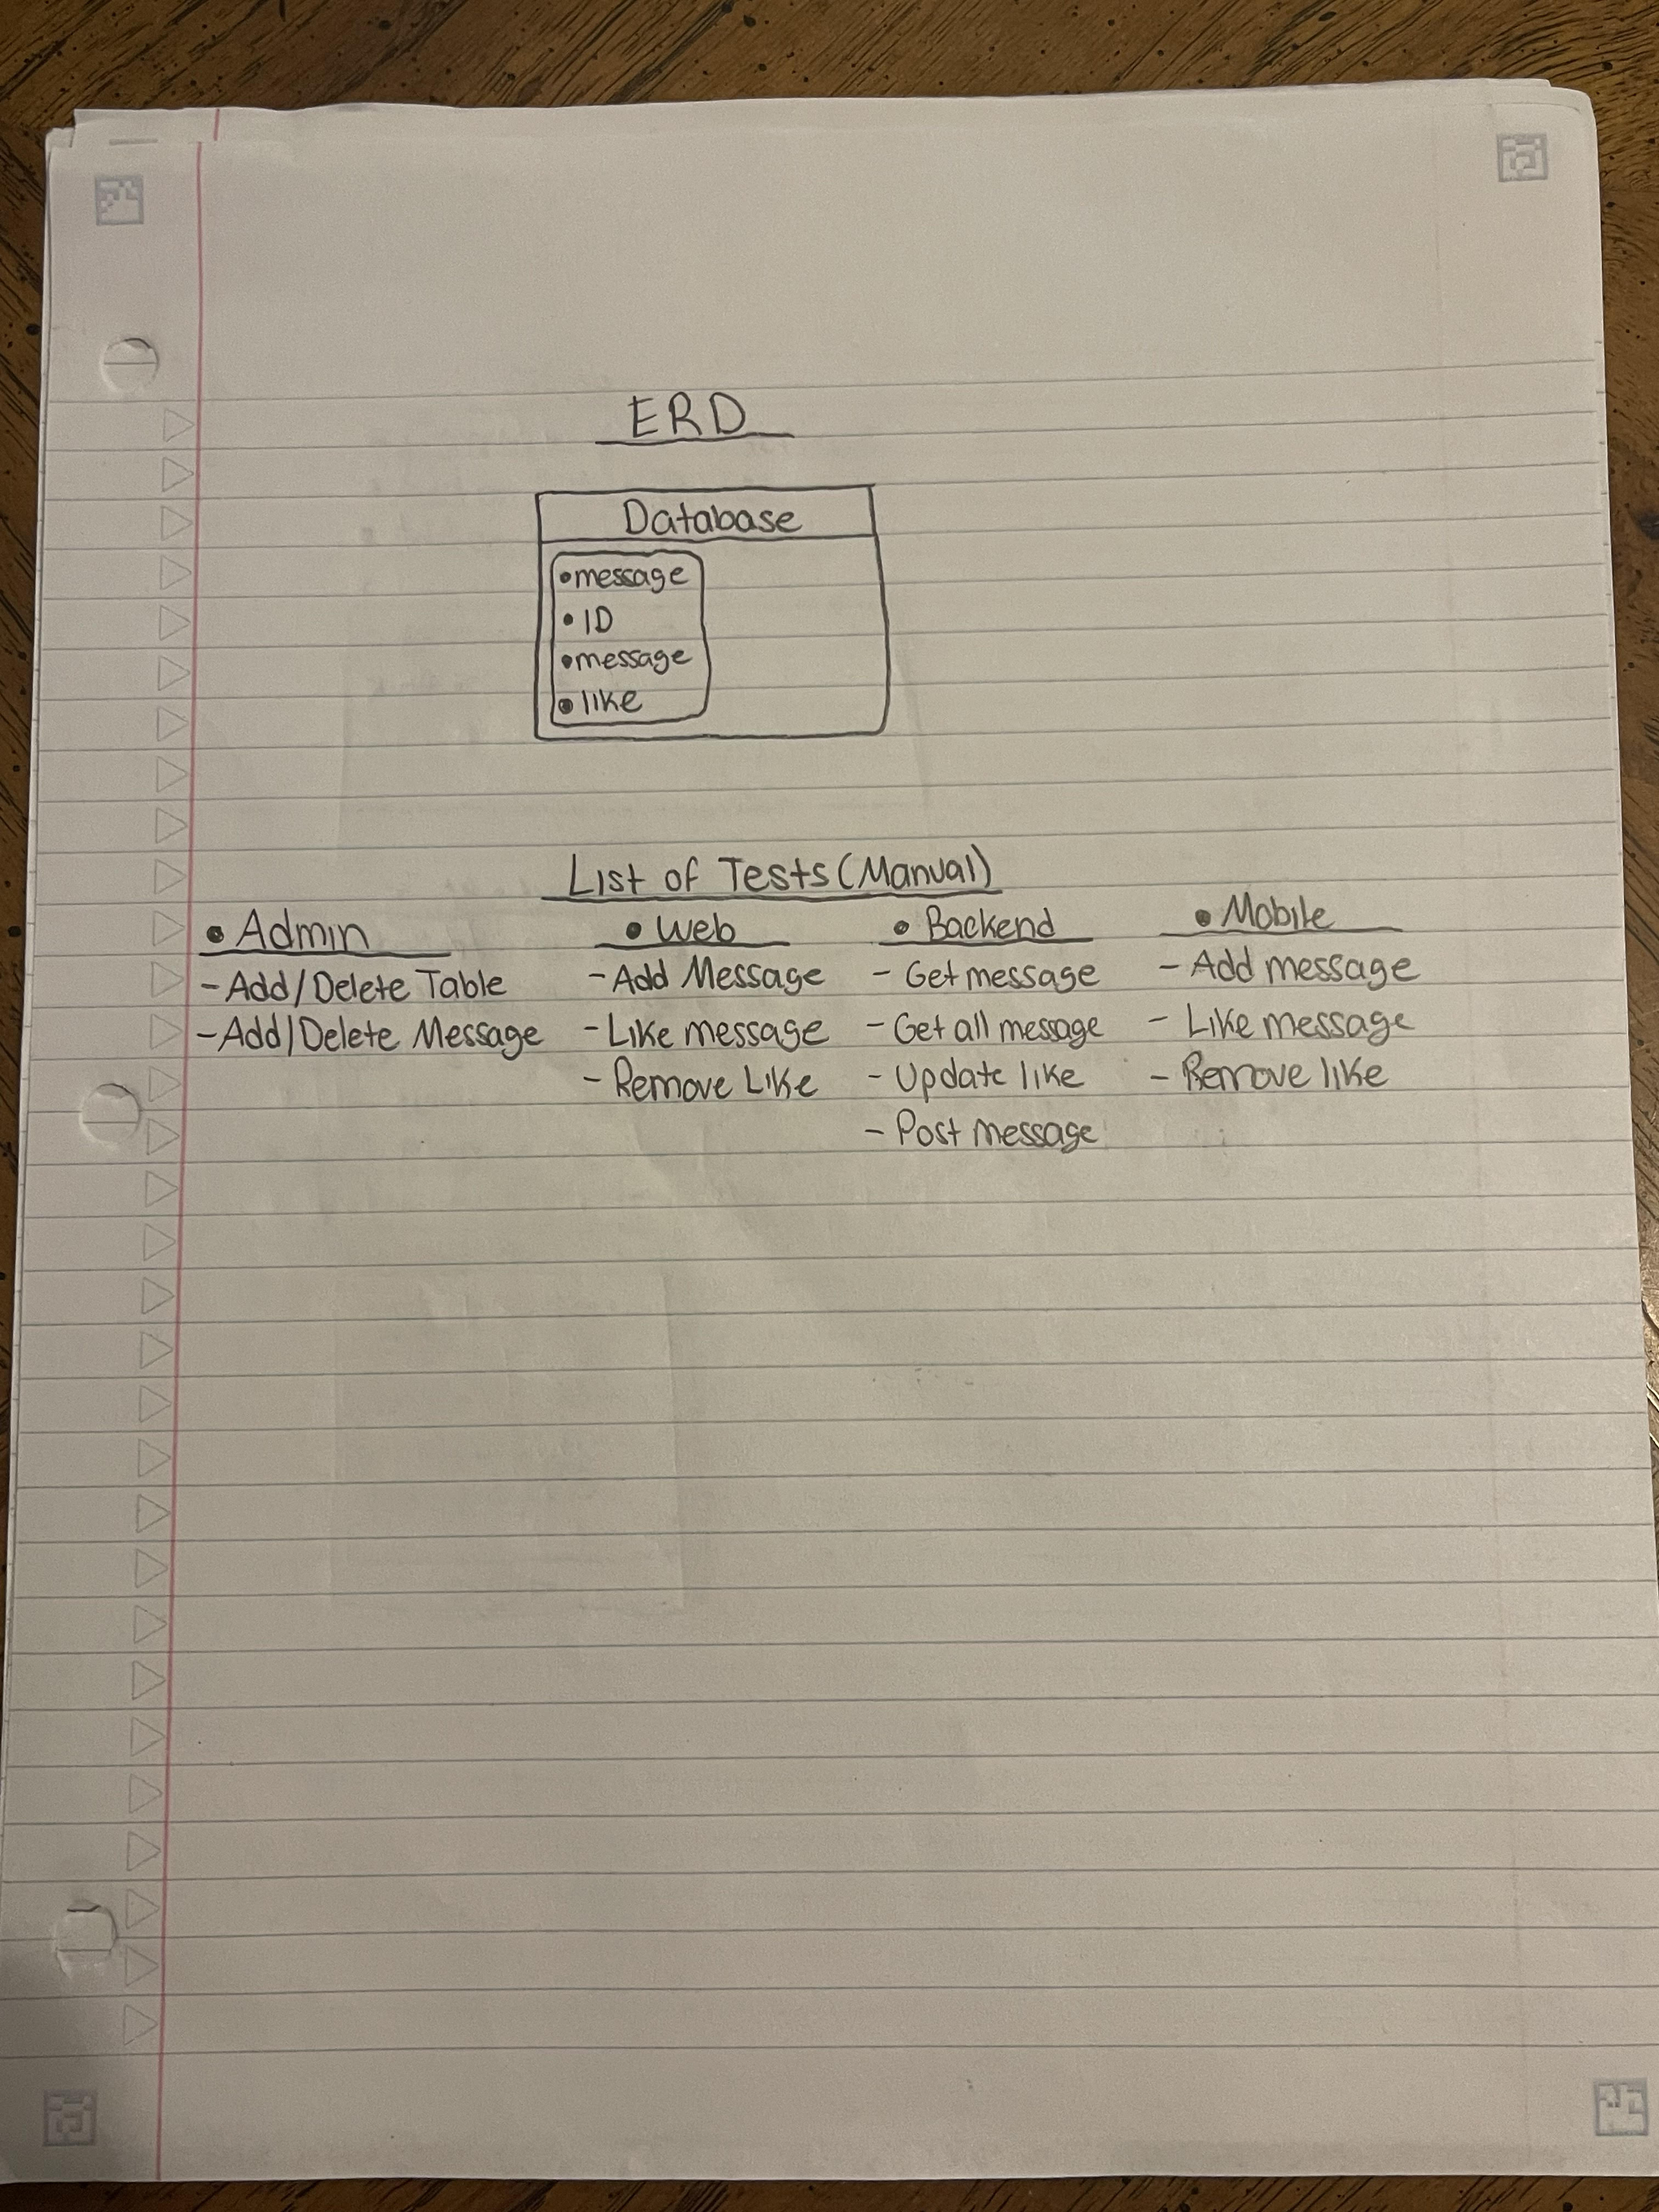 ERD
Database
•message
•ID
•message
•like
List of Tests (Manual)
•Admin
-Add/Delete Table
-Add/Delete Message
•Web
-Add Message
-Like message
-Remove Like
•Backend
-Get message
-Get all message
-Update like
-Post message
•Mobile
-Add message
-Like message
-Remove like